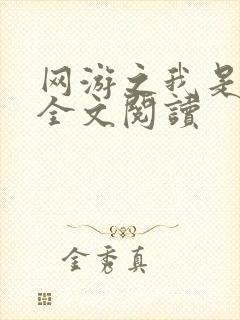 网游之我是
全文閱讀
金秀真